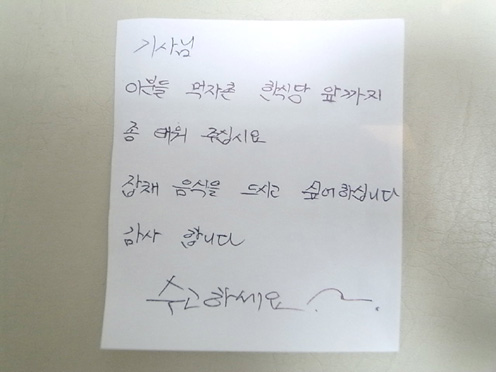 기사님
이분들 먹자촌 한식당 앞까지
좀 태워 주십시요
잡채 음식을 드시고 싶어하십니다
감사 합니다
수고하세요 ~.